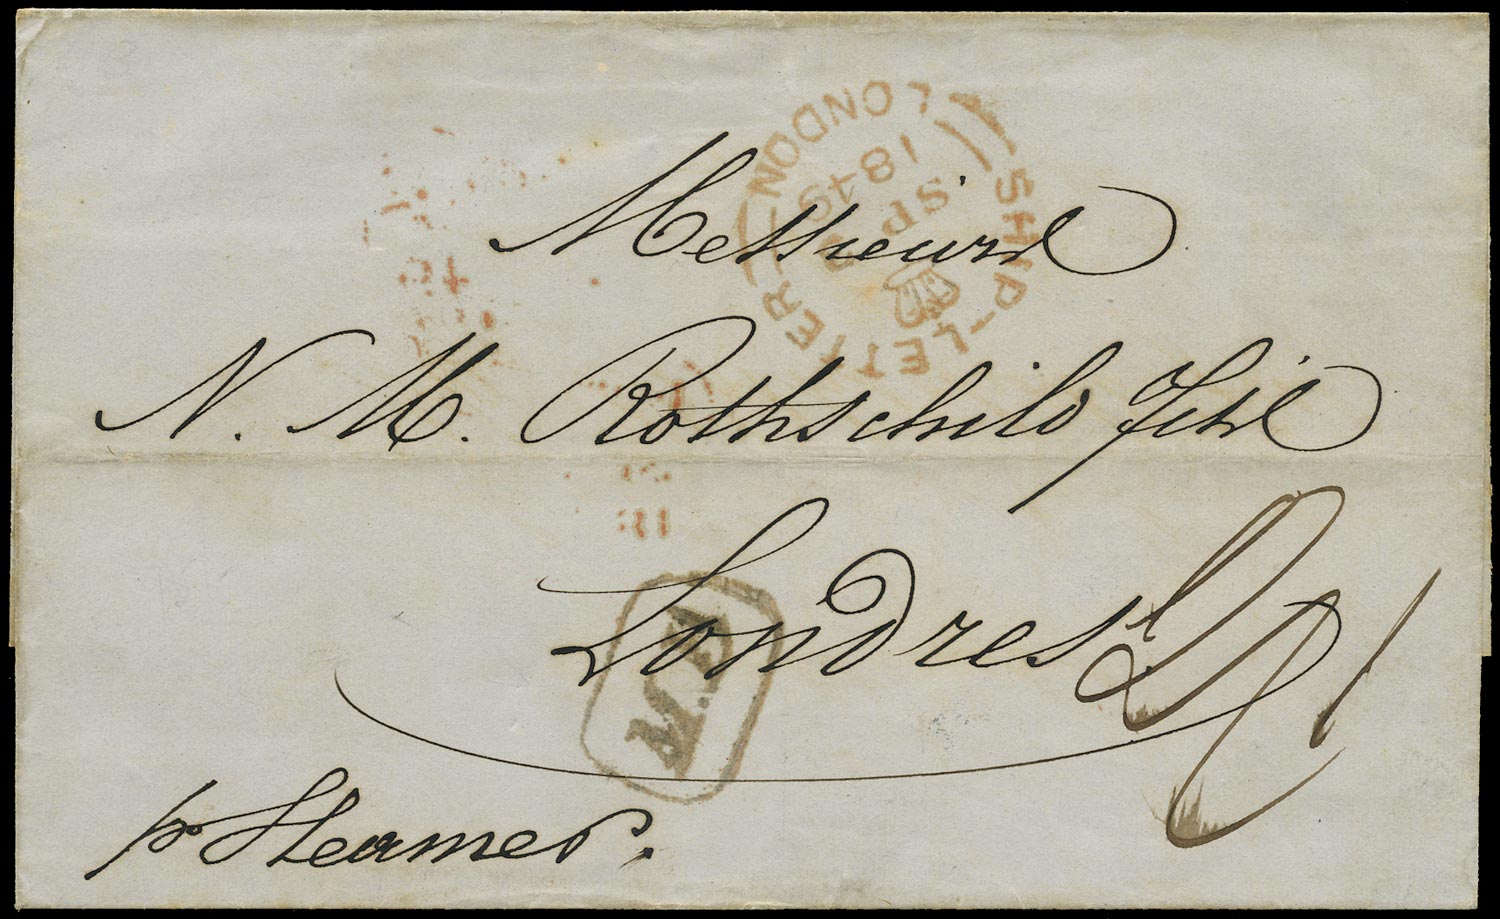 LONDON
SHIP-LETTER
SP
1849
Messieurs
N. M. Rothschild Fils
Londres
M.B
pr Steamer.